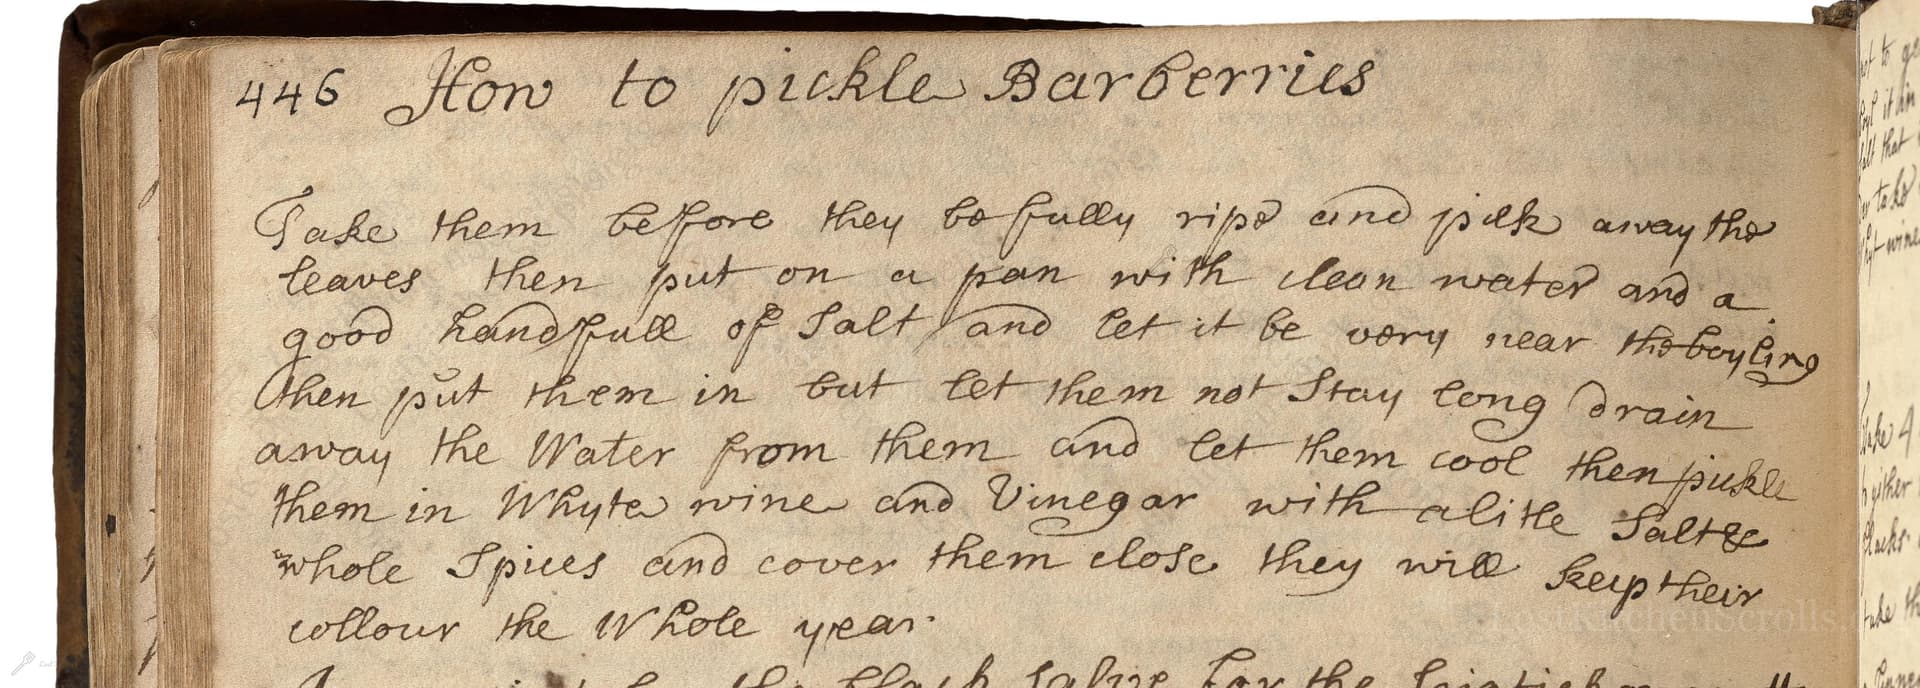 446 How to pickle Barberries
Take them beffore they be fully ripe and pick away the
leaves then put on a pan with clean water and a
good handfull of Salt and let it be very near the boyling
then put them in but let them not Stay long drain
away the Water from them and let them cool then pickle
them in Whyte wine and Vinegar with a litle Salt &
whole Spices and cover them close they will keep their
collour the Whole year
the black Salve for the
LostKitchenScrolls.